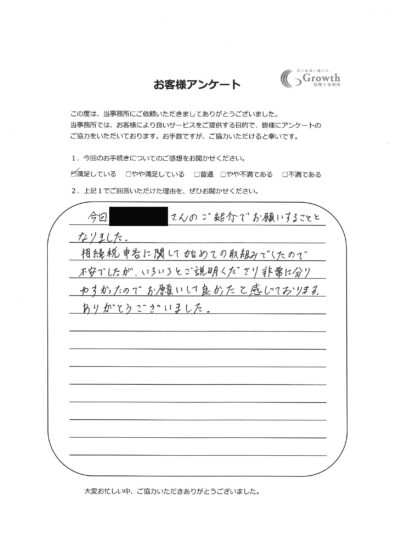 Growth
税理士事務所
お客様アンケート
この度は、当事務所にご依頼いただきましてありがとうございました。
当事務所では、お客様により良いサービスをご提供する目的で、皆様にアンケートの
ご協力をいただいております。お手数ですが、ご協力いただけると幸いです。
1．今回のお手続きについてのご感想をお聞かせください。
☑満足している □やや満足している □普通 □やや不満である □不満である
2．上記1でご回答いただけた理由を、ぜひお聞かせください。
今回 さんのご紹介でお願いすることと
なりました。
相続税申告に関して始めての取組みでしたので
不安でしたが、いろいろとご説明くださり非常に分り
やすかったのでお願いして良かったと感じております。
ありがとうございました。
大変お忙しい中、ご協力いただきありがとうございました。